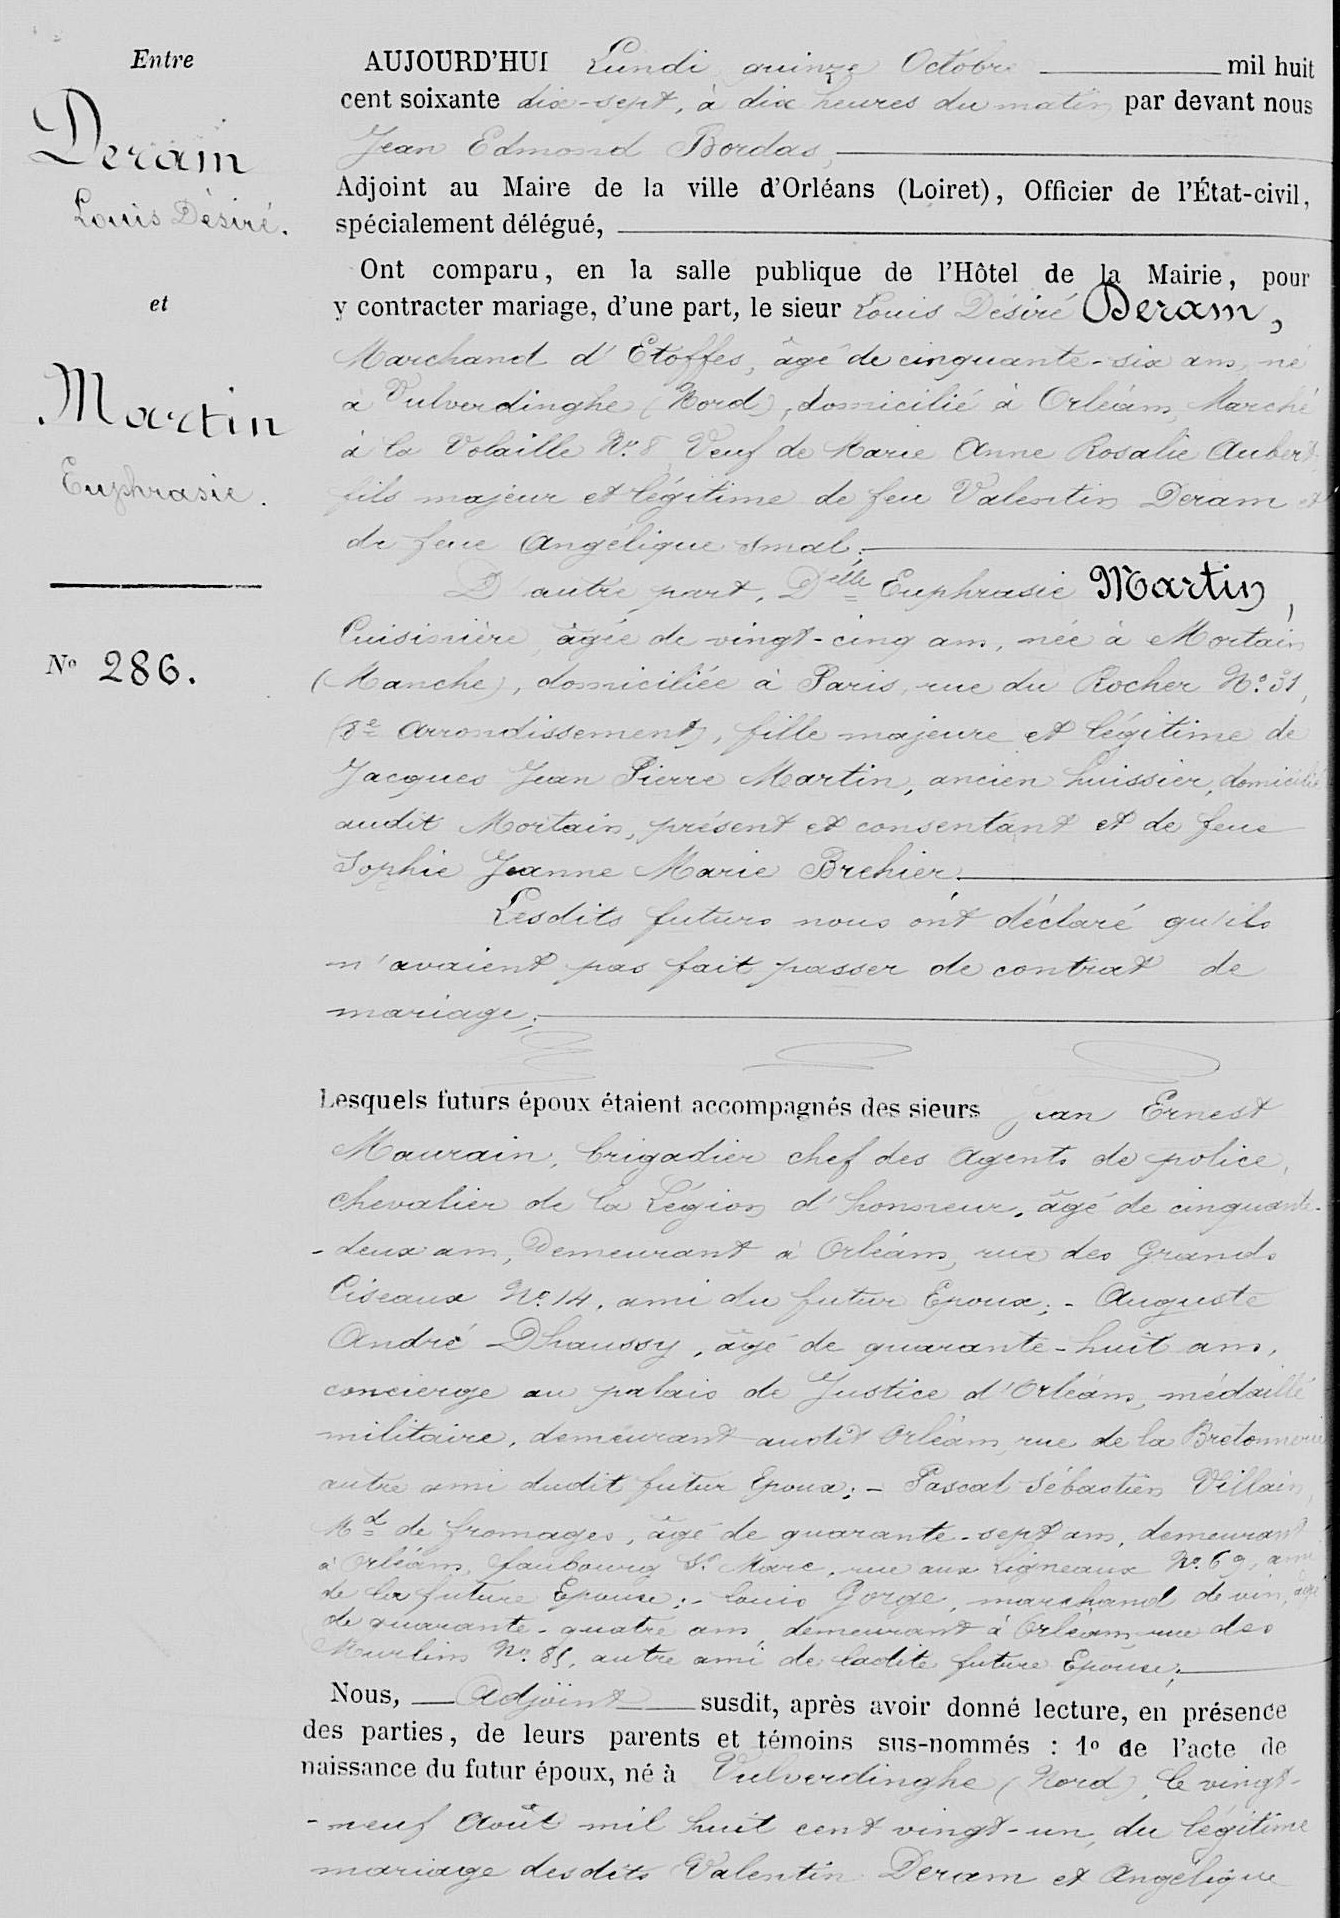 Entre
Deram
Louis Désiré.
et
Martin
Euphrasie.
No 286.
AUJOURD'HUI Lundi quinze Octobre mil huit
cent soixante dix-sept, à dix heures du matin par devant nous
Jean Edmond Bordas,
Adjoint au Maire de la ville d'Orléans (Loiret), Officier de l'État-civil,
spécialement délégué,
Ont comparu, en la salle publique de l'Hôtel de la Mairie, pour
y contracter mariage, d'une part, le sieur Louis Désiré Deram,
Marchand d'Etoffes, âgé de cinquante-six ans, né
à Vulverdinghe (Nord), domicilié à Orléans, Marché
à la Volaille No. 8, Veuf de Marie Anne Rosalie Aubert,
fils majeur et légitime de feu Valentin Deram et
de feue Angélique Smal;
D'autre part, Delle Euphrasie Martin,
Cuisinière, âgée de vingt-cinq ans, née à Mortain
(Manche), domiciliée à Paris, rue du Rocher No. 31,
(8e arrondissement), fille majeure et légitime de
Jacques Jean Pierre Martin, ancien huissier, domicilié
audit Mortain, présent et consentant et de feue
Sophie Jeanne Marie Brehier.
Lesdits futurs nous ont déclaré qu'ils
n'avaient pas fait passer de contrat de
mariage;
Lesquels futurs époux étaient accompagnés des sieurs Jean Ernest
Maurain, brigadier chef des Agents de police,
chevalier de la Légion d'honneur, âgé de cinquante-
-deux ans, Demeurant à Orléans, rue des Grands
Ciseaux No. 14, ami du futur Epoux; - Auguste
André Dhaussy, âgé de quarante-huit ans,
concierge au palais de Justice d'Orléans, médaillé
militaire, demeurant audit Orléans, rue de la Bretonnerie
autre ami dudit futur Epoux; - Pascal Sébastien Villain,
Md de fromages, âgé de quarante-sept ans, demeurant
à Orléans, faubourg St. Marc, rue aux Ligneaux No. 69, ami
de la future Epouse; - Louis Gorge, marchand de vin, âgé
de quarante-quatre ans, demeurant à Orléans rue des
Murlins No. 85, autre ami de ladite future Epouse;
Nous, Adjoint susdit, après avoir donné lecture, en présence
des parties, de leurs parents et témoins sus-nommés : 1o de l'acte de
naissance du futur époux, né à Vulverdinghe (Nord), le vingt-
-neuf Août mil huit cent vingt-un, du légitime
mariage desdits Valentin Deram et Angélique